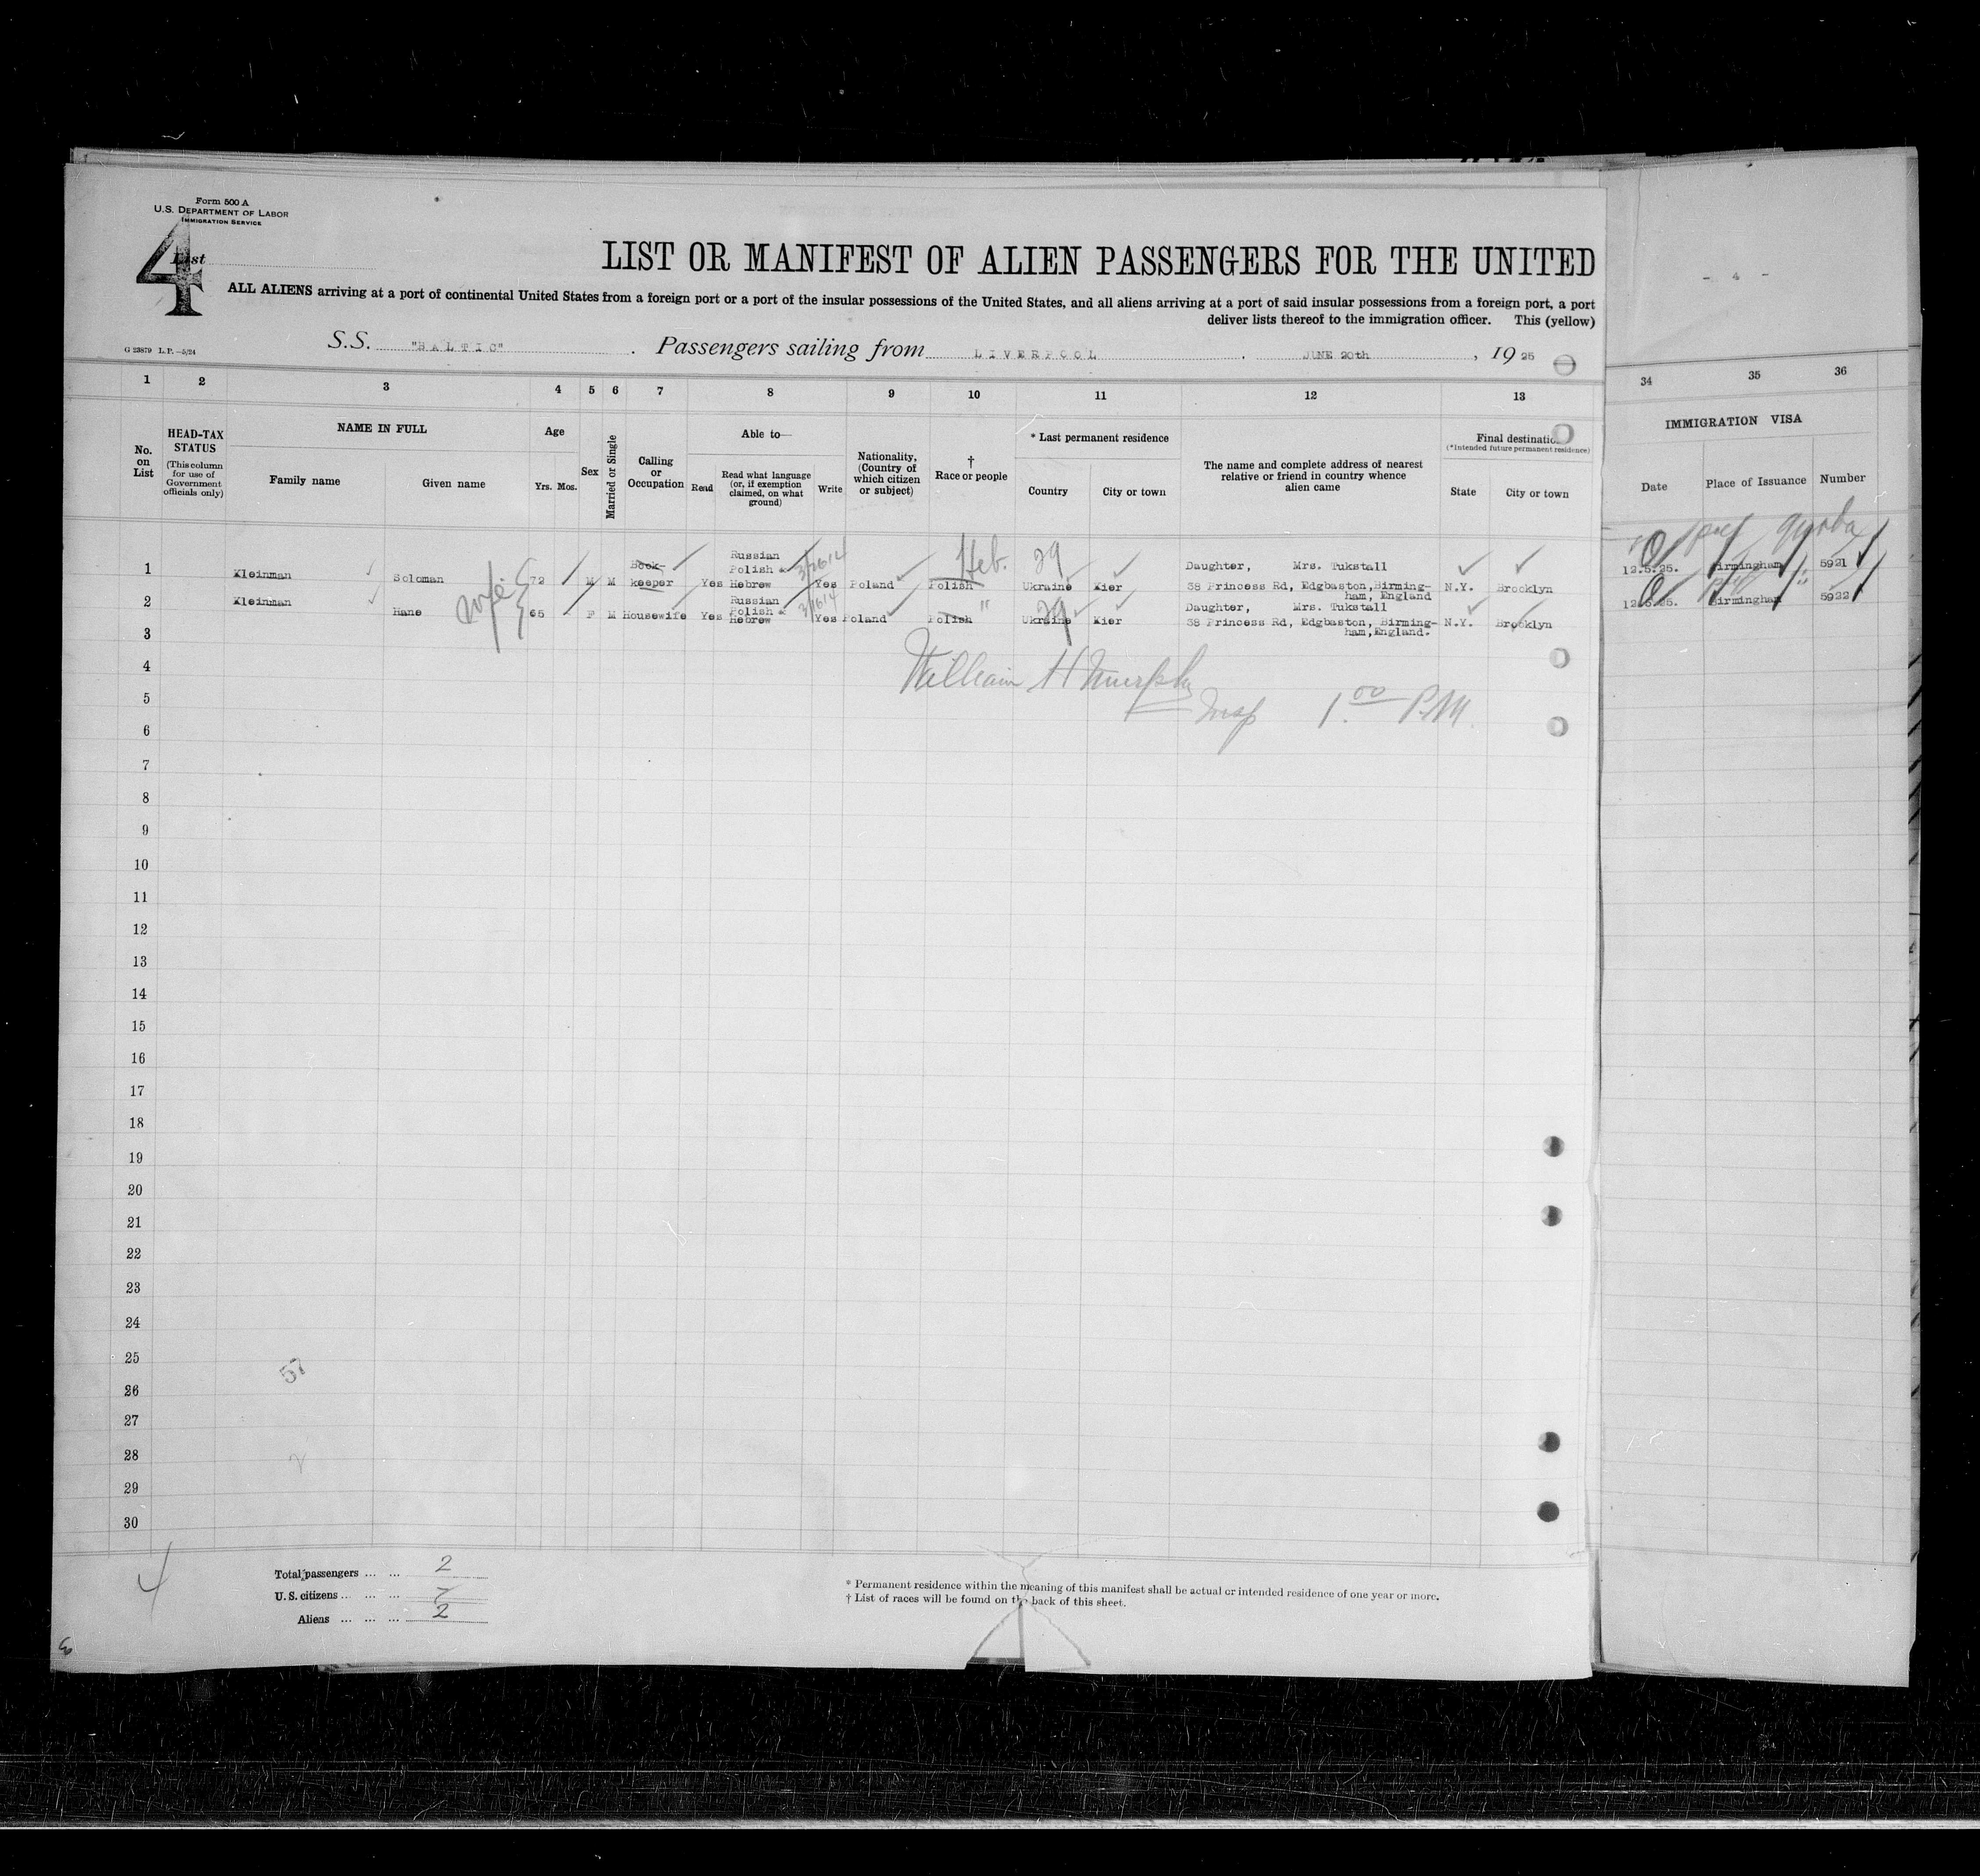 Form 500 A
U.S. DEPARTMENT OF LABOR
IMMIGRATION SERVICE
4
List
LIST OR MANIFEST OF ALIEN PASSENGERS FOR THE UNITED
- 4 -
ALL ALIENS arriving at a port of continental United States from a foreign port or a port of the insular possessions of the United States, and all aliens arriving at a port of said insular possessions from a foreign port, a port
deliver lists thereof to the immigration officer. This (yellow)
G 23879 L.P.—5/24
S.S. "BALTIC". Passengers sailing from LIVERPOOL, JUNE 20th, 1925
1 2 3 4 5 6 7 8 9 10 11 12 13 34 35 36
No. on List
HEAD-TAX STATUS
(This column for use of Government officials only)
NAME IN FULL
Family name
Given name
Age
Yrs. Mos.
Sex
Married or Single
Calling or Occupation
Able to—
Read
Read what language (or, if exemption claimed, on what ground)
Write
Nationality, (Country of which citizen or subject)
† Race or people
* Last permanent residence
Country
City or town
The name and complete address of nearest relative or friend in country whence alien came
Final destination
(*Intended future permanent residence)
State
City or town
IMMIGRATION VISA
Date
Place of Issuance
Number
1 Kleinman Soloman 72 M M Book-keeper Yes Russian Polish & Hebrew Yes Poland Polish Heb. Ukraine 29 Kier Daughter, Mrs. Tukstall 38 Princess Rd, Edgbaston, Birming-ham, England N.Y. Brooklyn 12.5.25. Birmingham 5921
2 Kleinman Hane wife 65 F M Housewife Yes Russian Polish & Hebrew Yes Poland Polish " Ukraine 29 Kier Daughter, Mrs. Tukstall 38 Princess Rd, Edgbaston, Birming-ham, England. N.Y. Brooklyn 12.5.25. Birmingham 5922
3
4
William H Murphy
5
Insp 1.00 P.M.
6
7
8
9
10
11
12
13
14
15
16
17
18
19
20
21
22
23
24
25
57
26
27
28
29
30
4
Total passengers ... ... 2
U.S. citizens ... ... ... -
Aliens ... ... ... 2
* Permanent residence within the meaning of this manifest shall be actual or intended residence of one year or more.
† List of races will be found on the back of this sheet.